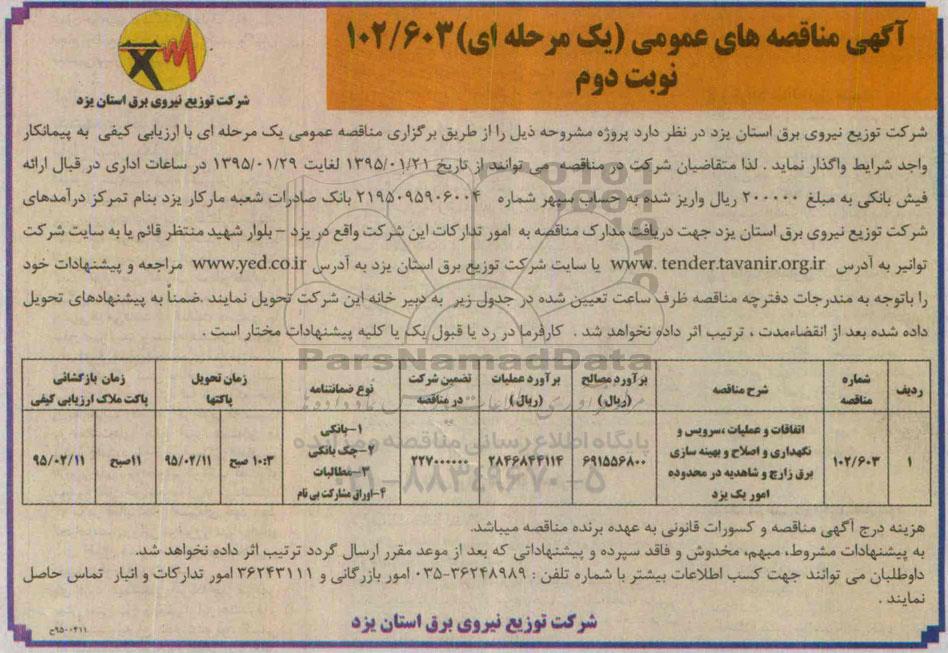 آگهی مناقصه های عمومی (یک مرحله ای) ۱۰۲/۶۰۳
نوبت دوم
شرکت توزیع نیروی برق استان یزد
شرکت توزیع نیروی برق استان یزد در نظر دارد پروژه مشروحه ذیل را از طریق برگزاری مناقصه عمومی یک مرحله ای با ارزیابی کیفی به پیمانکار
واجد شرایط واگذار نماید . لذا متقاضیان شرکت در مناقصه می توانند از تاریخ ۱۳۹۵/۰۱/۲۱ لغایت ۱۳۹۵/۰۱/۲۹ در ساعات اداری در قبال ارائه
فیش بانکی به مبلغ ۲۰۰۰۰۰ ریال واریز شده به حساب سپهر شماره ۲۱۹۵۰۹۵۹۰۶۰۰۴ بانک صادرات شعبه مارکار یزد بنام تمرکز درآمدهای
شرکت توزیع نیروی برق استان یزد جهت دریافت مدارک مناقصه به امور تدارکات این شرکت واقع در یزد – بلوار شهید منتظر قائم یا به سایت شرکت
توانیر به آدرس www. tender.tavanir.org.ir یا سایت شرکت توزیع برق استان یزد به آدرس www.yed.co.ir مراجعه و پیشنهادات خود
را باتوجه به مندرجات دفترچه مناقصه ظرف ساعت تعیین شده در جدول زیر به دبیر خانه این شرکت تحویل نمایند .ضمناً به پیشنهادهای تحویل
داده شده بعد از انقضاءمدت ، ترتیب اثر داده نخواهد شد . کارفرما در رد یا قبول یک یا کلیه پیشنهادات مختار است .
ردیف شماره مناقصه شرح مناقصه برآورد مصالح (ریال) برآورد عملیات (ریال) تضمین شرکت در مناقصه نوع ضمانتنامه زمان تحویل پاکتها زمان بازگشائی پاکت ملاک ارزیابی کیفی
۱ ۱۰۲/۶۰۳ اتفاقات و عملیات ،سرویس و نگهداری و اصلاح و بهینه سازی برق زارچ و شاهدیه در محدوده امور یک یزد ۶۹۱۵۵۶۸۰۰ ۲۸۴۶۸۴۲۱۱۴ ۲۲۷۰۰۰۰۰۰
۱–بانکی
۲–چک بانکی
۳–مطالبات
۴–اوراق مشارکت بی نام
۱۰:۳۰ صبح ۹۵/۰۲/۱۱ ۱۱صبح ۹۵/۰۲/۱۱
هزینه درج آگهی مناقصه و کسورات قانونی به عهده برنده مناقصه میباشد.
به پیشنهادات مشروط، مبهم، مخدوش و فاقد سپرده و پیشنهاداتی که بعد از موعد مقرر ارسال گردد ترتیب اثر داده نخواهد شد.
داوطلبان می توانند جهت کسب اطلاعات بیشتر با شماره تلفن : ۳۶۲۴۸۹۸۹-۰۳۵ امور بازرگانی و ۳۶۲۴۳۱۱۱ امور تدارکات و انبار تماس حاصل
نمایند .
شرکت توزیع نیروی برق استان یزد
ParsNamadData
پایگاه اطلاع رسانی مناقصه و مزایده
۰۲۱-۸۸۳۴۹۶۷۰-۵